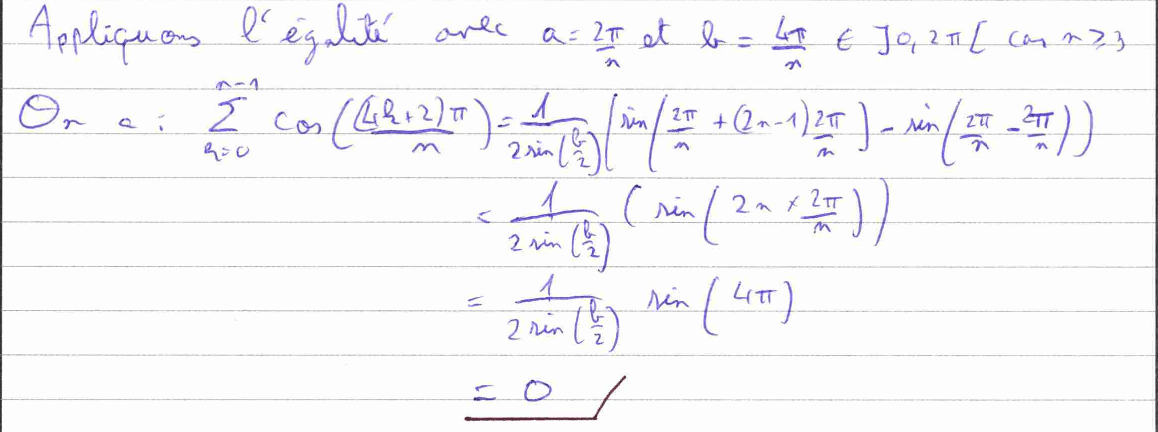 Appliquons l'égalité avec a = 2π/n et b = 4π/n ∈ ]0, 2π[ car n ≥ 3
On a : ∑_{k=0}^{n-1} cos((4k+2)π/n) = 1/(2 sin(b/2)) (sin(2π/n + (2n-1) 2π/n) - sin(2π/n - 2π/n))
= 1/(2 sin(b/2)) (sin(2n × 2π/n))
= 1/(2 sin(b/2)) sin(4π)
= 0